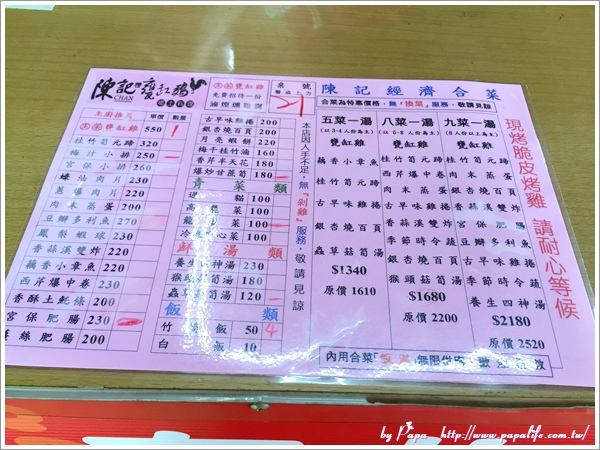 陳記甕缸雞
CHAN
免費招待一份
滷煙燻雞腐
桌號
21
主廚推薦 單價 數量
甕缸雞 550
桂竹筍元蹄 320
梅汁小排 250
宮保小排 260
蠔油肉片 210
蔥爆肉片 210
肉末茶蛋 200
豆瓣多利魚 270
鳳梨蝦球 230
香蒜溪雙炸 220
藕香小章魚 230
西芹爆中卷 230
香酥土魠條 200
宮保肥腸 230
薑絲肥腸 200
古早味雞捲 200
銀杏燒百頁 200
月亮蝦餅 200
梅干桂竹滷 160
香芹羊天花 180
爆炒甘蔗筍 180
青菜類
100
高 菜 100
龍 菜 100
心菜 100
鮮湯類
養生 神湯 230
猴頭菇筍湯 150
蟲草菇筍湯 120
飯類
竹 飯 50 4
白飯 10
本店因人手不足,無『剁雞』服務,敬請見諒
陳記經濟合菜
合菜為特惠價格,無『換菜』服務,敬請見諒
五菜一湯
(以3-4人份為主)
甕缸雞
桂竹筍元蹄
肉末茶蛋
藕香小章魚
銀杏燒百頁
蟲草菇筍湯
$1340
原價 1610
八菜一湯
(以6-8人份為主)
甕缸雞
桂竹筍元蹄
西芹爆中卷
肉末茶蛋
銀杏燒百頁
香蒜溪雙炸
季節時令蔬
古早味雞捲
猴頭菇筍湯
$1680
原價 2200
九菜一湯
(8人份以上為主)
甕缸雞
桂竹筍元蹄
藕香小章魚
宮保肥腸
豆瓣多利魚
古早味雞捲
銀杏燒百頁
季節時令蔬
養生四神湯
$2180
原價 2520
內用合菜「飯 湯」無限供應
現烤脆皮烤雞 請耐心等候
by Papa http://www.papalife.com.tw/